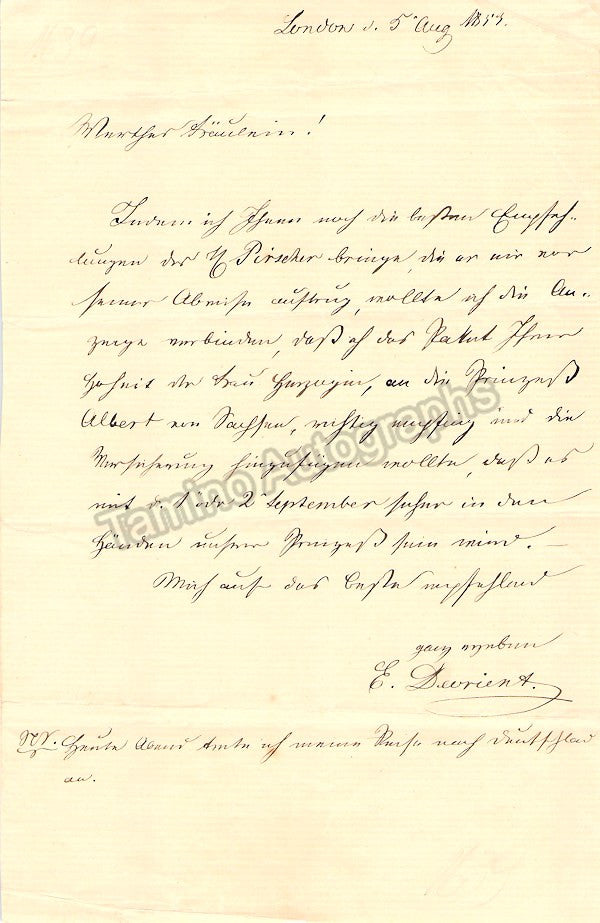 London d. 5 Aug 1853.
Werthes Fräulein!
Indem ich Ihnen noch die besten Empfeh-
lungen des H Pirscher bringe, die er mir vor
seiner Abreise auftrug, wollte ich die An-
zeige verbinden, daß ich das Paket Ihrer
Hoheit der Frau Herzogin, an die Prinzeß
Albert von Sachsen, richtig empfing und die
Versicherung hinzufügen wollte, daß es
mit d. 1 oder 2 September sicher in den
Händen unserer Prinzeß sein wird.
Mich auf das beste empfehlend
ganz ergebenst
E. Devrient.
NS. Heute Abend trete ich meine Reise nach Deutschland
an.
Tamino Autographs